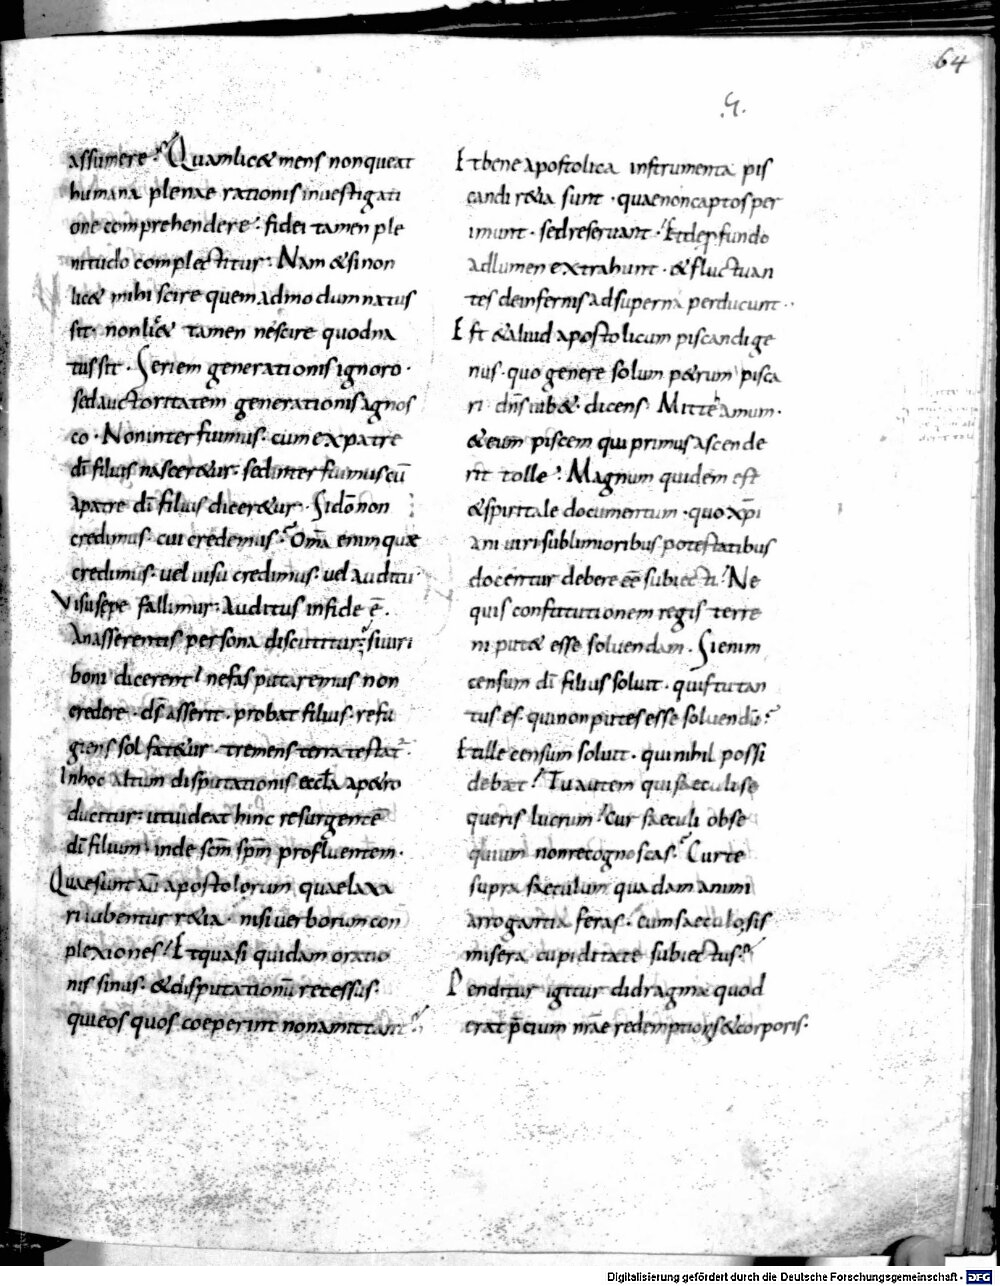 64
assumere? Quam lic& mens non queat
humana plenae rationis inuestigati
one comprehendere? fidei tamen ple
nitudo complectitur. Nam & si non
lic& mihi scire quemadmodum natus
sit. non lic& tamen nescire quod na
tus sit. Seriem generationis ignoro.
sed auctoritatem generationis agnos
co. Non interfuimus. cum ex patre
dī filius nascer&ur. sed interfuimus cū
a patre dī filius dicer&ur. Si dō non
credimus. cui credemus? Om̄a enim quae
credimus. uel uisu credimus. uel auditu.
Visus sepe fallimur. Auditus in fide ē.
An asserentis persona discutitur? si uiri
boni dicerent! nefas putaremus non
credere. ds̄ asserit. probat filius. refu
giens sol fat&ur. tremens terra testat̄.
In hoc altum disputationis eccl̄a a p&ro
ducitur. ut uideat hinc resurgentē
dī filium. inde sc̄m sp̄m profluentem.
Quae sunt aū apostolorum quae laxa
ri iubentur r&ia. nisi uerborum con
plexiones! Et quasi quidam oratio
nis sinus. & disputationū recessus.
qui eos quos coeperint non amittant?
Et bene apostolica instrumenta pis
candi r&ia sunt. quae non captos per
imunt. sed reseruant. Et de profundo
ad lumen extrahunt. & fluctuan
tes de infernis ad superna perducunt.
Est & aliud apostolicum piscandi ge
nus. quo genere solum p&rum pisca
ri dn̄s iub& dicens. Mitte amum.
& eum piscem qui primus ascende
rit tolle! Magnum quidem est
& spiritale documentum. quo xp̄i
ani uiri sublimioribus potestatibus
docentur debere eē subiecti! Ne
quis constitutionem regis terre
ni put& esse soluendam. Si enim
censum dī filius soluit. quis tu tan
tus es. qui non putes esse soluendū?
Et ille censum soluit. qui nihil possi
debat! Tu autem qui saeculi se
queris lucrum! Cur saeculi obse
quium non recognoscas? Cur te
supra saeculum quadam animi
arrogantia feras. cum saeculo sis
misera cupiditate subiectus?
Penditur igitur didragma quod
erat p̄cium nr̄ae redemptionis & corporis.